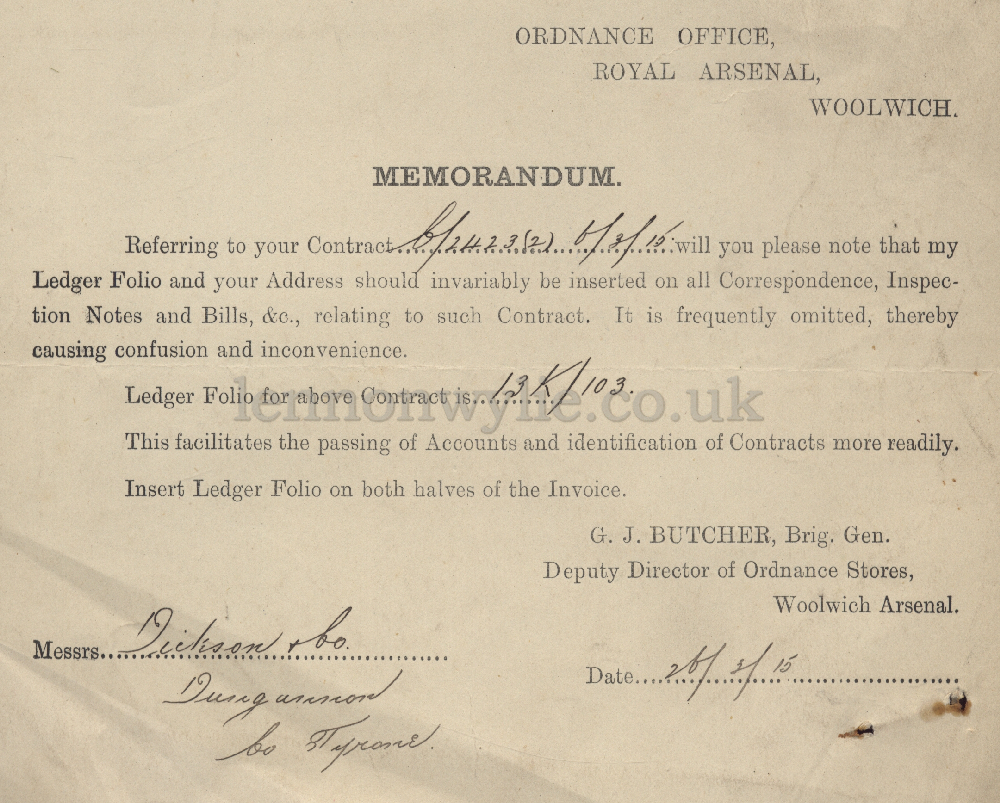 ORDNANCE OFFICE,
ROYAL ARSENAL,
WOOLWICH.
MEMORANDUM.
Referring to your Contract C/2423(2) 5/3/15 will you please note that my
Ledger Folio and your Address should invariably be inserted on all Correspondence, Inspec-
tion Notes and Bills, &c., relating to such Contract. It is frequently omitted, thereby
causing confusion and inconvenience.
Ledger Folio for above Contract is 13K/103.
lennonwylie.co.uk
This facilitates the passing of Accounts and identification of Contracts more readily.
Insert Ledger Folio on both halves of the Invoice.
G. J. BUTCHER, Brig. Gen.
Deputy Director of Ordnance Stores,
Woolwich Arsenal.
Messrs. Dickson & Co.
Date 26/3/15
Dungannon
Co Tyrone.